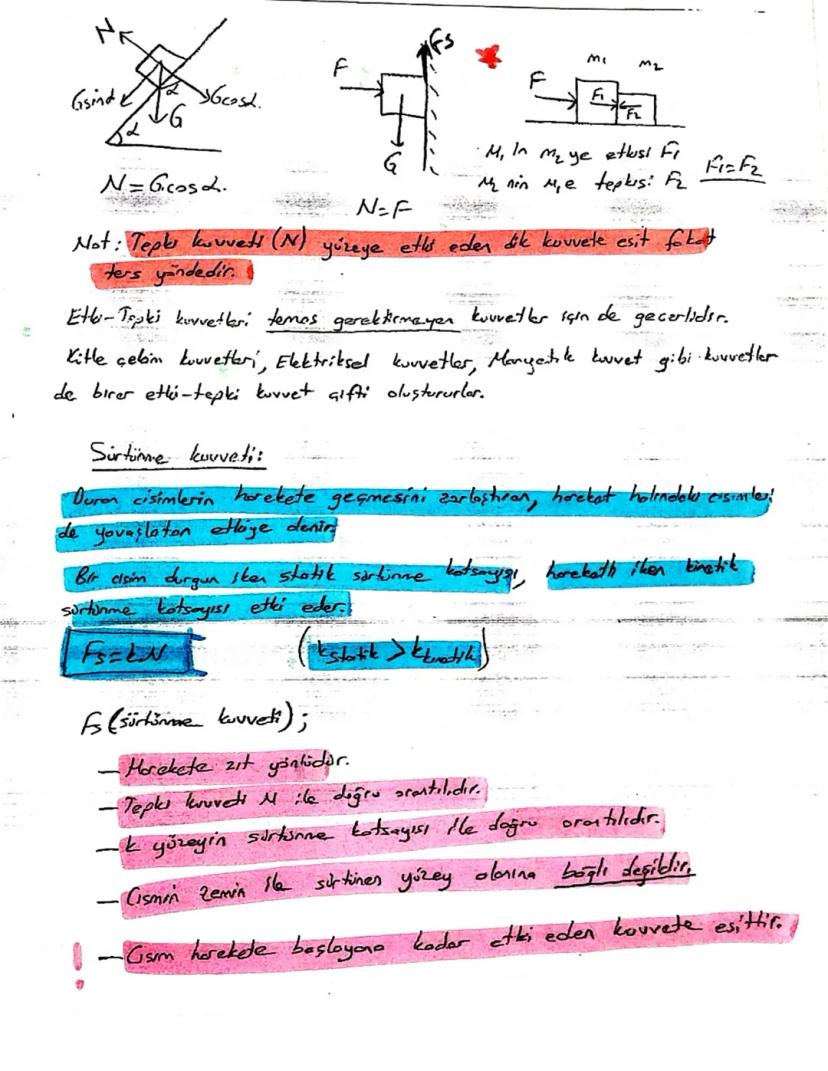 N
Gsinα
α
Gcosα.
G
α
N = G.cosα.
F
Fs
G
N=F
F
m₁
m₂
F₁
F₂
M₁ in m₂ ye etkisi F₁
M₂ nin M₁e tepkisi F₂
F₁=F₂
Not: Tepki kuvveti (N) yüzeye etki eden dik kuvvete eşit fakat
ters yöndedir.
Etki-Tepki kuvvetleri temas gerektirmeyen kuvvetler için de geçerlidir.
Kütle çekim kuvvetleri, Elektriksel kuvvetler, Manyetik kuvvet gibi kuvvetler
de birer etki-tepki kuvvet çifti oluştururlar.
Sürtünme kuvveti:
Duran cisimlerin harekete geçmesini zorlaştıran, hareket halindeki cisimleri
de yavaşlatan etkiye denir.
Bir cisim durgun iken statik sürtünme katsayısı, hareketli iken kinetik
sürtünme katsayısı etki eder.
Fs=k.N
(kstatik > kkinetik)
Fs (sürtünme kuvveti);
— Harekete zıt yönlüdür.
— Tepki kuvveti N ile doğru orantılıdır.
— k yüzeyin sürtünme katsayısı ile doğru orantılıdır.
— Cismin zemin ile sürtünen yüzey alanına bağlı değildir.
! — Cisim harekete başlayana kadar etki eden kuvvete eşittir.